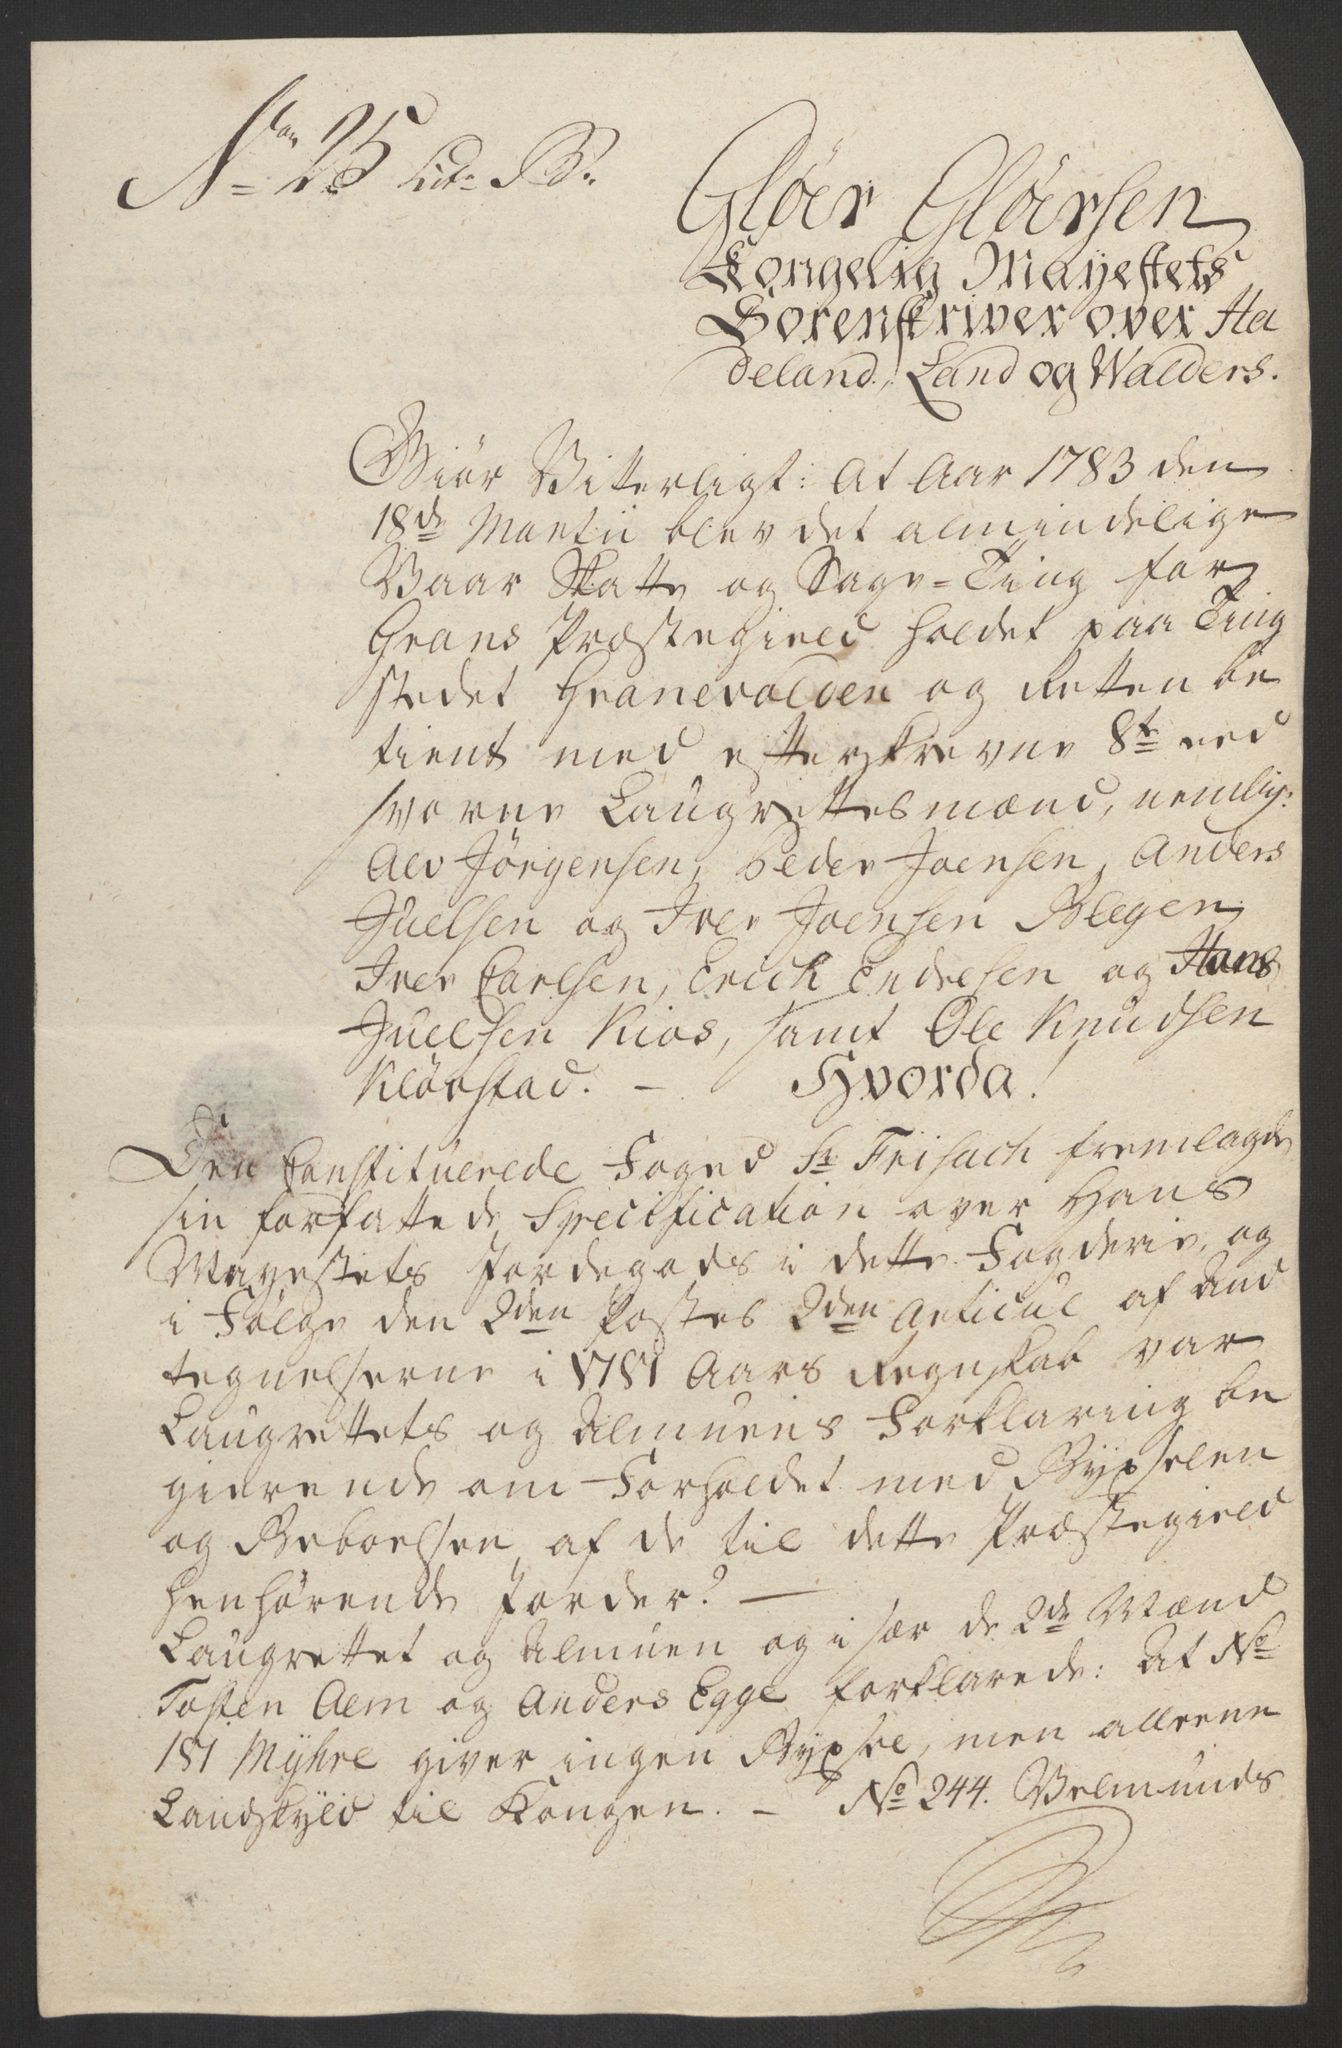 No 25 Lit. B.
Gløer Gløersen
Kongelig Mayestets
Sorenskriver over Ha
deland, Land og Walders.
Giør Vitterligt: At Aar 1783 den
18de Martii blev det almindelige
Vaar Skatte og Sage-Ting for
Grans Præstegield holdet paa Ting
stedet Granevolden og Retten be
tient med efterskrevne 8te eed
svorne Laugrettesmænd, nemlig:
Alv Jørgensen, Peder Joensen, Anders
Juelsen og Iver Joensen Blegen,
Iver Carlsen, Erich Endresen og Hans
Juelsen Kios, samt Ole Knudsen
Kløvstad. – Hvorda!
Den Constituerede Foged Sr Frisach fremlagde
sin forfattede Specification over Hans
Mayestets Jordegods i dette Fogderie, og
i Følge den 2den Postes 2den Articul af And
tegnelserne i 1781 Aars Regnskab var
Laugrettets og Almuens Forklaring be
gierende om Forholdet med Bypselen
og Beboelsen af de til dette Præstegield
henhørende Jorder? —
Laugrettet og Almuen og især de 2de Mænd
Tosten Alm og Anders Egge forklarede: At No
181 Myhre giver ingen Bypsel, men alleene
Landskyld til Kongen. – No 244. Velmunds